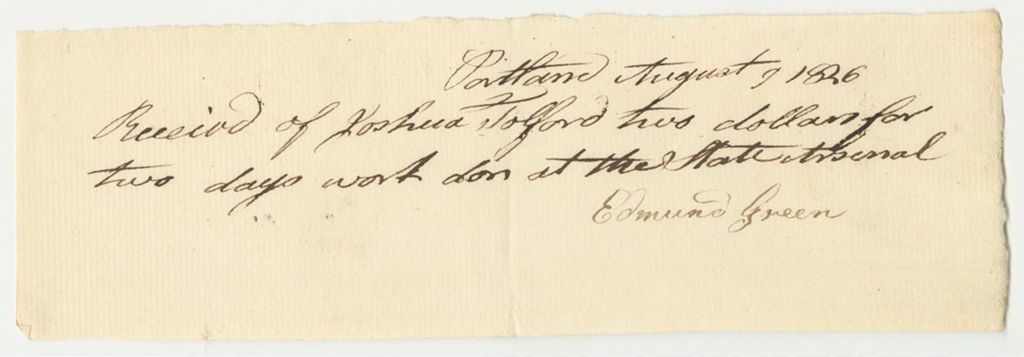 Portland August 9 1826
Receivd of Joshua Tolford two dollars for
two days work don at the State Arsenal
Edmund Green